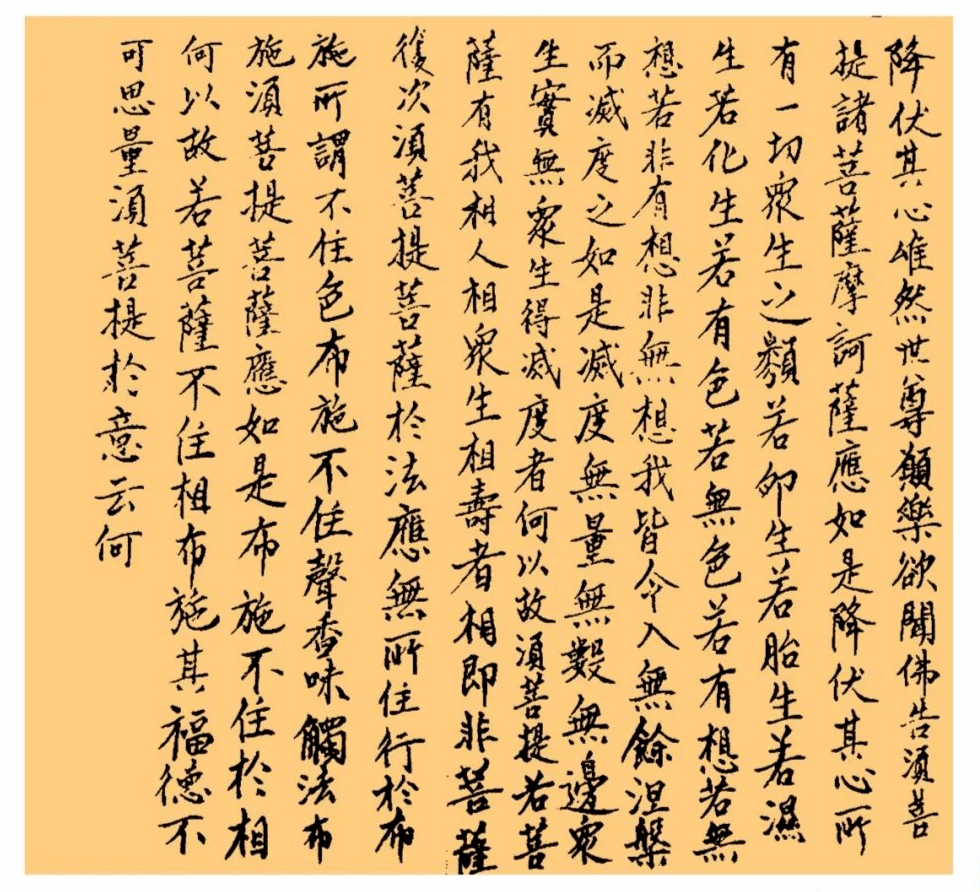 降伏其心唯然世尊願樂欲聞佛告須菩
提諸菩薩摩訶薩應如是降伏其心所
有一切眾生之類若卵生若胎生若濕
生若化生若有色若無色若有想若無
想若非有想非無想我皆令入無餘涅槃
而滅度之如是滅度無量無數無邊眾
生實無眾生得滅度者何以故須菩提若菩
薩有我相人相眾生相壽者相即非菩薩
復次須菩提菩薩於法應無所住行於布
施所謂不住色布施不住聲香味觸法布
施須菩提菩薩應如是布施不住於相
何以故若菩薩不住相布施其福德不
可思量須菩提於意云何